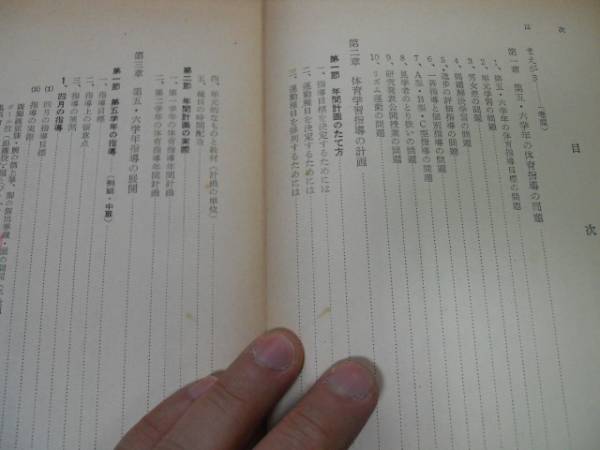 目次
目次
まえがき
第一章 第五・六学年の体育指導の問題
1、第五・六学年の体育指導目標の問題
2、単元学習の問題
3、男女差の問題
4、問題解決学習の問題
5、進歩の計画指導の問題
6、一斉指導と個別指導の問題
7、A型・B型・C型指導の問題
8、見学者のとり扱いの問題
9、研究発表会公開授業の問題
10、リズム運動の問題
第二章 体育学習指導の計画
第一節 年間計画のたて方
一、指導目標を決定するためには
二、運動種目を決定するためには
三、運動種目を排列するためには
四、単元的なものと教材(計画の単位)
五、種目の時間配当
第二節 年間計画の実際
一、第一学年の体育指導年間計画
二、第二学年の体育指導年間計画
第三章 第五・六学年指導の展開
第一節 第五学年の指導
一、指導目標
二、指導上の留意点
三、指導の実際
1、四月の指導
(1) 指導目標
(2) 指導の実際